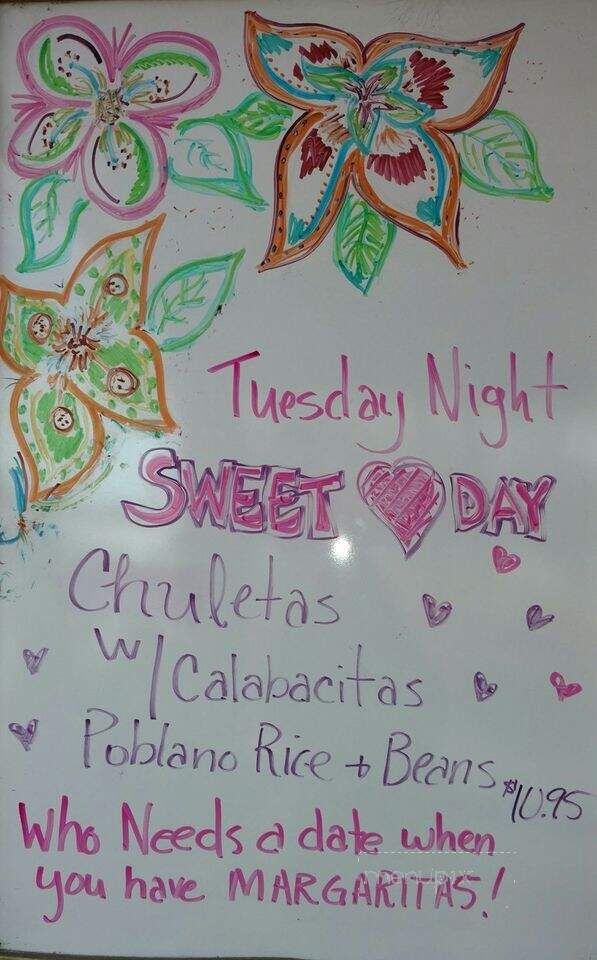 Tuesday Night
SWEET DAY
Chuletas
w/ Calabacitas
Poblano Rice + Beans $10.95
Who Needs a date when
you have MARGARITAS!
menupix